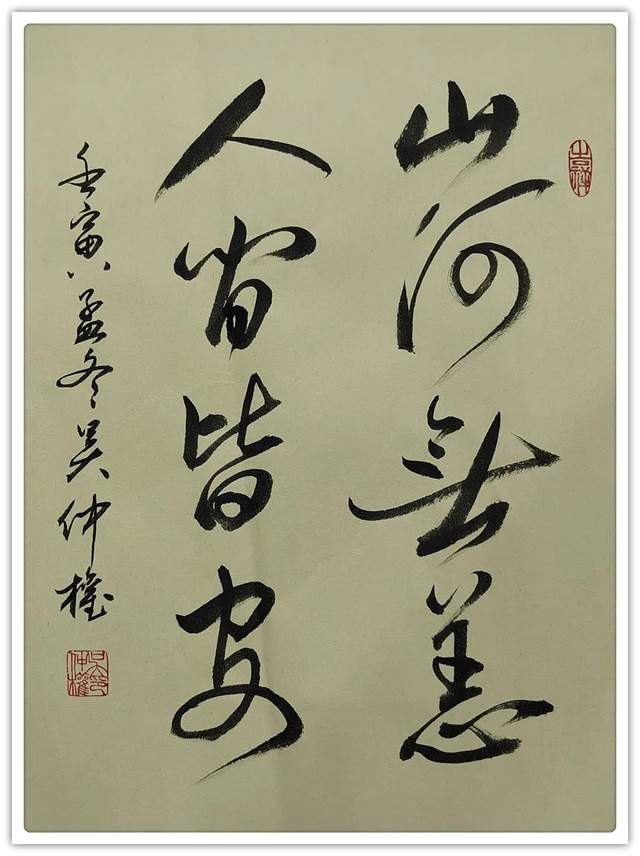 山河無恙
人皆皆安
壬寅孟冬吴仲權